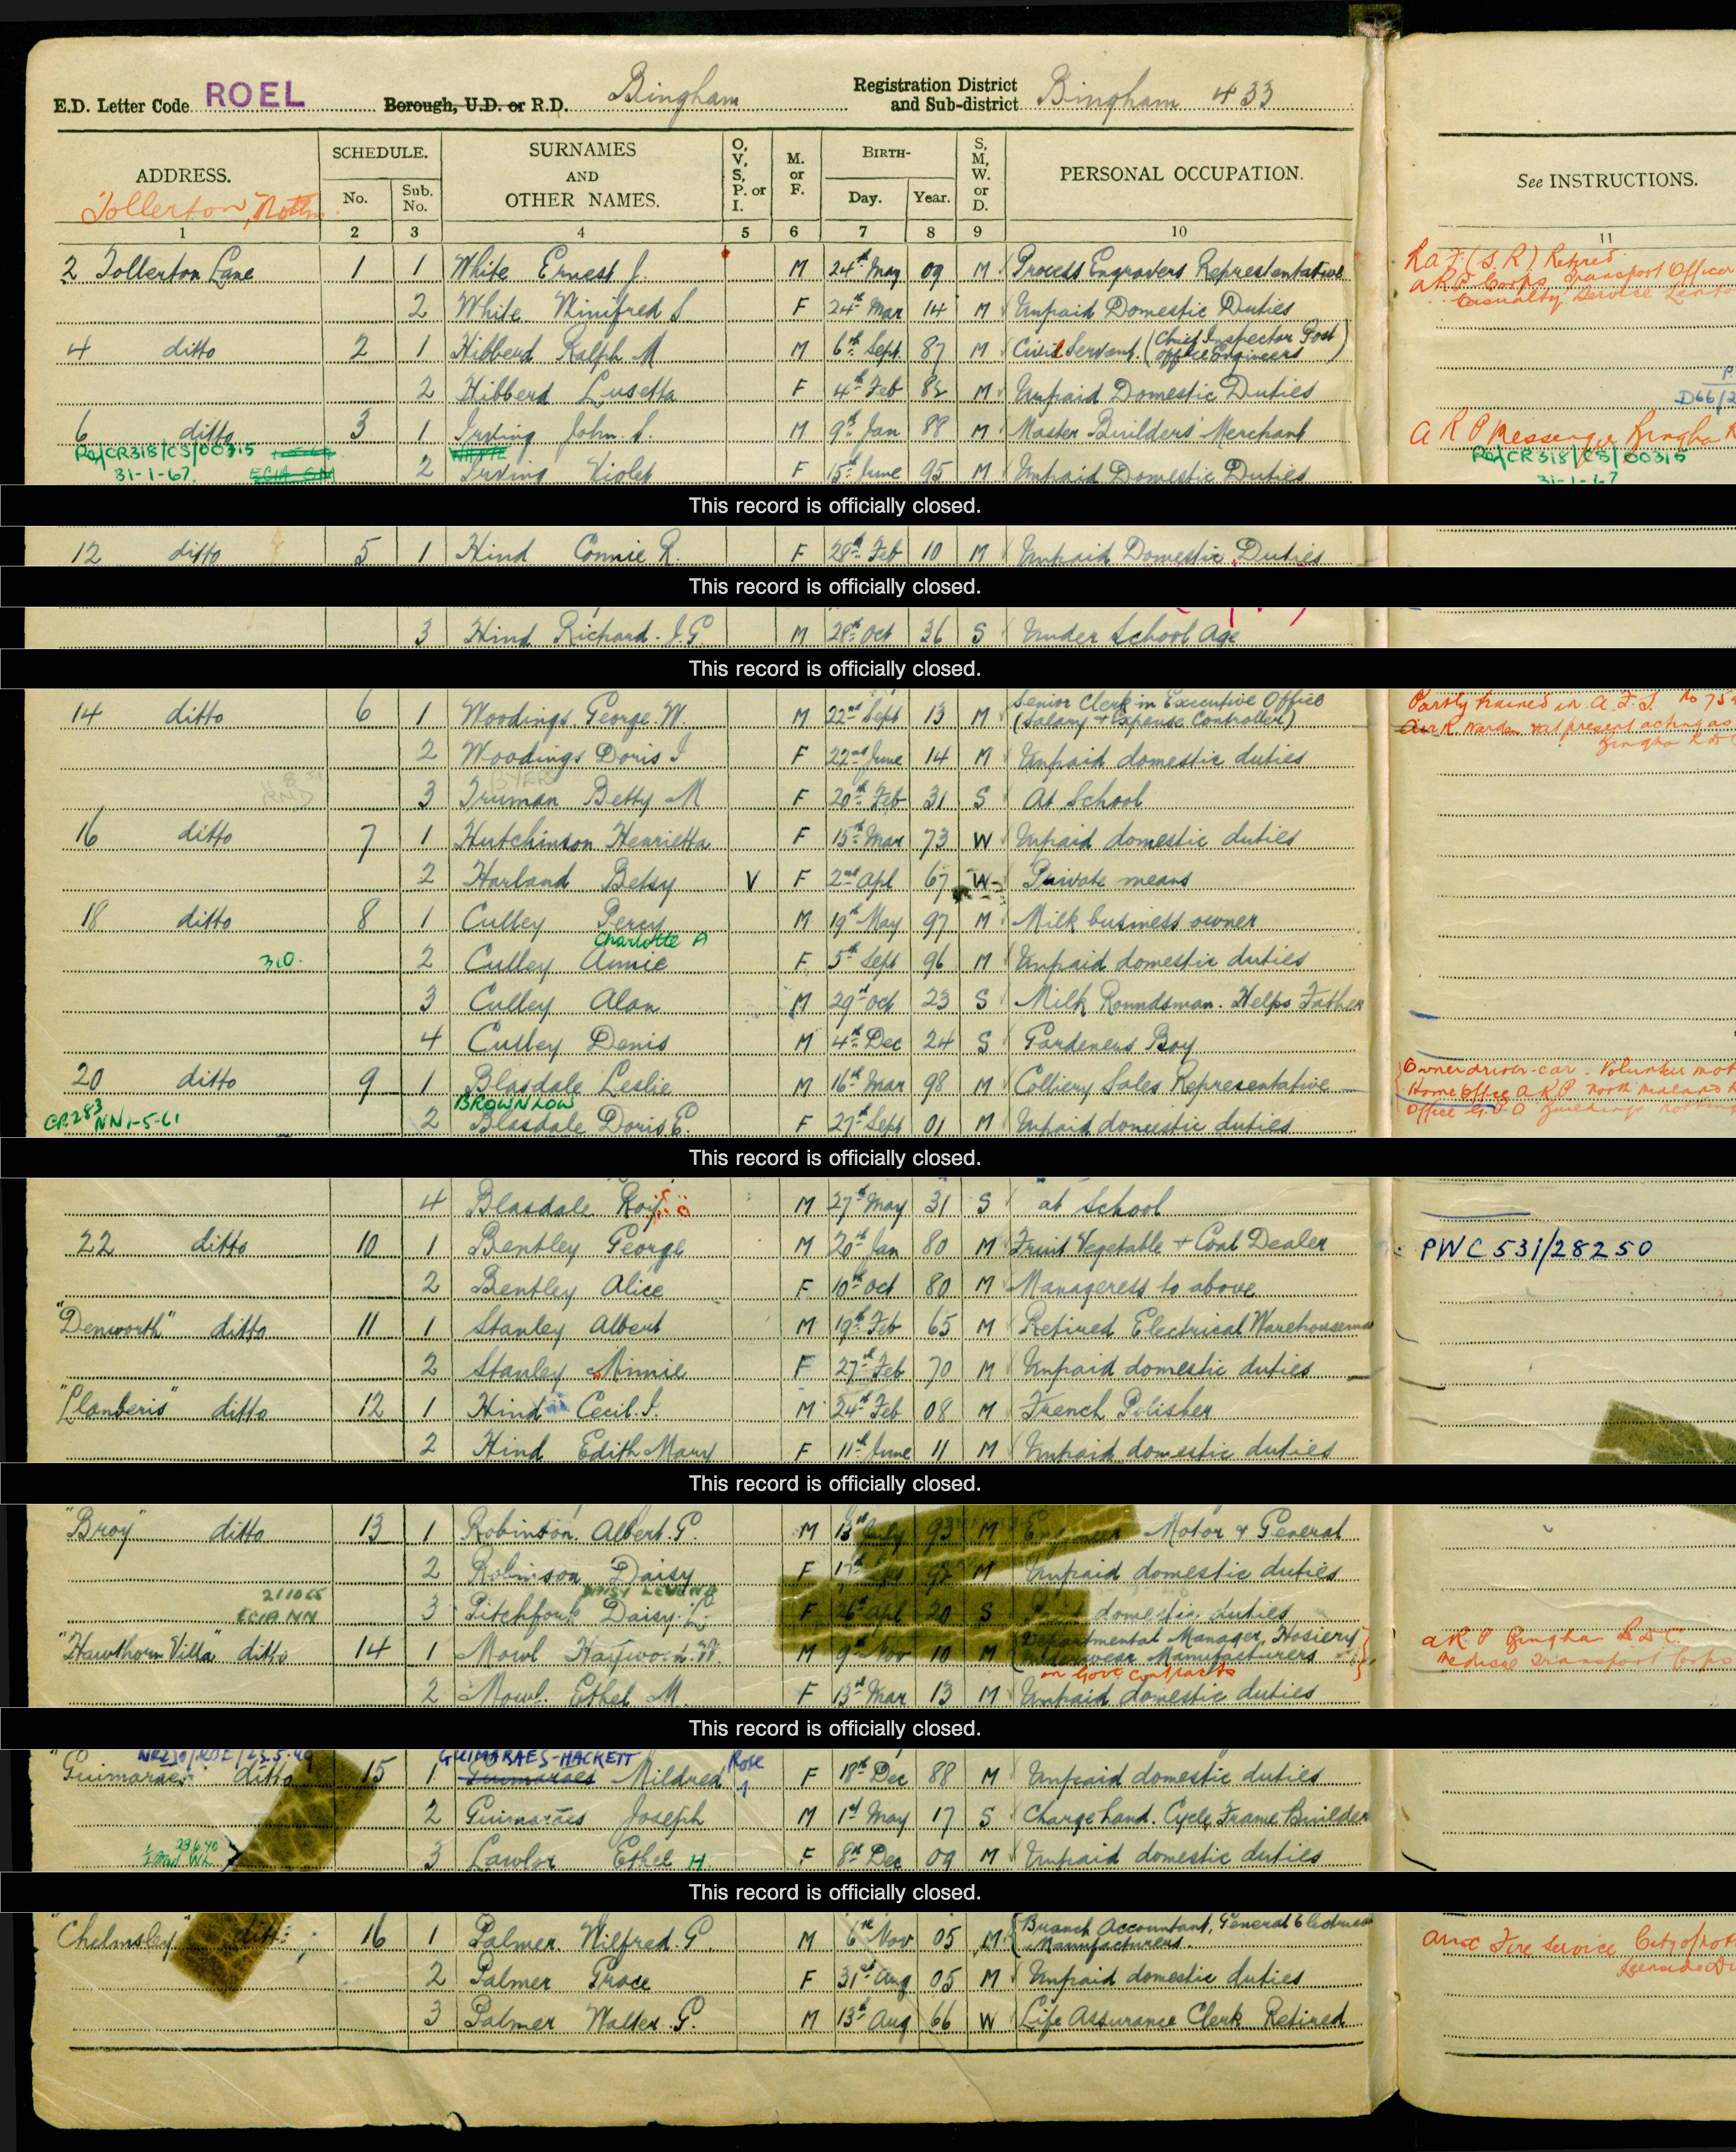 E.D. Letter Code ROEL Borough, U.D. or R.D. Bingham Registration District and Sub-district Bingham 433
ADDRESS. SCHEDULE. No. Sub. No. SURNAMES AND OTHER NAMES. O, V, S, P. or I. M. or F. BIRTH- Day. Year. S, M, W. or D. PERSONAL OCCUPATION. See INSTRUCTIONS.
Tollerton, Notts.
1 2 3 4 5 6 7 8 9 10 11
2 Tollerton Lane 1 1 White Ernest J. M 24th May 09 M Process Engravers Representative R a F. (S.R) Retired.
ARP Corps Transport Officer
Casualty Service
2 White Winifred S F 24th Mar 14 M Unpaid Domestic Duties
4 ditto 2 1 Hibberd Ralph M M 6th Sept. 87 M Civil Servant (Chief Inspector Post Office Engineers)
2 Hibberd Lusetta F 4th Feb 82 M Unpaid Domestic Duties
6 ditto 3 1 Irving John. S. M 9th Jan 88 M Master Builders' Merchant A R P Messenger Bingha
Re/CR318/CS/00315 WHYTE Re/CR318/CS/00315
31-1-67. 2 Irving Violet F 15th June 95 M Unpaid Domestic Duties
This record is officially closed.
12 ditto 5 1 Hind Connie R. F 28th Feb 10 M Unpaid Domestic Duties
This record is officially closed.
3 Hind Richard. J.G. M 28th Oct 36 S Under School Age
This record is officially closed.
14 ditto 6 1 Woodings George. W. M 22nd Sept 13 M Senior Clerk in Executive Office (Salary + Expense Controller) Partly trained in A.F.S.
Air R Warden at present acting as
2 Woodings Doris I F 22nd June 14 M Unpaid domestic duties
3 Truman Betty M F 20th Feb 31 S At School
16 ditto 7 1 Hutchinson Henrietta F 15th Mar 73 W Unpaid domestic duties
2 Harland Betsy V F 2nd Apl 67 W Private means
18 ditto 8 1 Culley Percy M 19th May 97 M Milk business owner
Charlotte A
310. 2 Culley Annie F 5th Sept 96 M Unpaid domestic duties
3 Culley Alan M 29th Oct 23 S Milk Roundsman. Helps Father
4 Culley Denis M 4th Dec 24 S Gardeners Boy
20 ditto 9 1 Blasdale Leslie M 16th Mar 98 M Colliery Sales Representative Owner driver-car - Volunteer
Home Office A R P North Midland
BROWNLOW
CR283 NN1-5-61 2 Blasdale Doris E. F 27th Sept 01 M Unpaid domestic duties Office G.P.O Buildings
This record is officially closed.
4 Blasdale Roy M 27th May 31 S at School
22 ditto 10 1 Bentley George M 20th Jan 80 M Fruit Vegetable + Coal Dealer PWC 531/28250
2 Bentley Alice F 10th Oct 80 M Manageress to above
"Denworth" ditto 11 1 Stanley Albert M 19th Feb 65 M Retired Electrical Warehouseman
2 Stanley Minnie F 27th Feb 70 M Unpaid domestic duties
"Llanberis" ditto 12 1 Hind Cecil. I. M 24th Feb 08 M French Polisher
2 Hind Edith Mary F 11th June 11 M Unpaid domestic duties
This record is officially closed.
"Broy" ditto 13 1 Robinson. Albert. G. M 13th July 93 M Engineer Motor & General
2 Robinson Daisy F 17th 92 M Unpaid domestic duties
211065 ECIA NN 3 Pitchfork Daisy. L. F 26th Apl 20 S Paid domestic duties
"Hawthorn Villa" ditto 14 1 Mowl Haywood. W. M 9th Nov 10 M Departmental Manager, Hosiery Underwear Manufacturers A R P Bingha R.D.C.
on Govt Contracts Medical Transport Corps
2 Mowl. Ethel M. F 13th Mar 13 M Unpaid domestic duties
This record is officially closed.
GUIMARAES-HACKETT Rose
"Guimaraes" ditto 15 1 Guimaraes Mildred F 18th Dec 88 M Unpaid domestic duties
2 Guimaraes Joseph M 1st May 17 S Charge hand. Cycle Frame Builder
23640 3 Lawler Ethel H. F 8th Dec 09 M Unpaid domestic duties
This record is officially closed.
"Chelmsley" ditto 16 1 Palmer. Wilfred. G. M 6th Nov 05 M Branch Accountant, General Electrical Manufacturers. Aux Fire Service City of
2 Palmer Grace F 31st Aug 05 M Unpaid domestic duties
3 Palmer Walter. G. M 13th Aug 66 W Life Assurance Clerk Retired